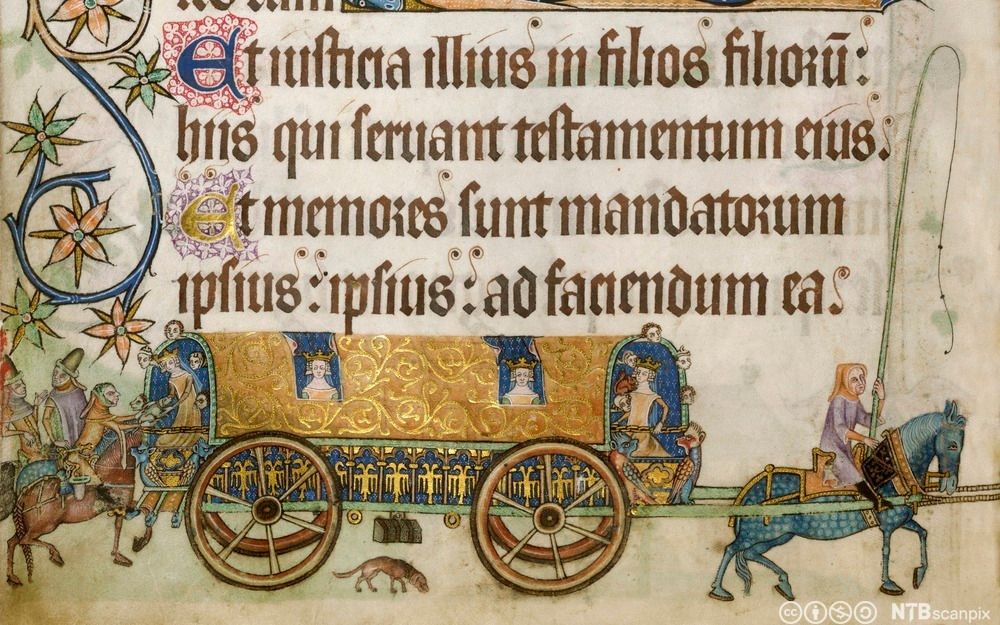 Et iusticia illius in filios filiorū:
hiis qui seruant testamentum eius.
Et memores sunt mandatorum
ipsius: ipsius: ad faciendum ea.
NTBscanpix